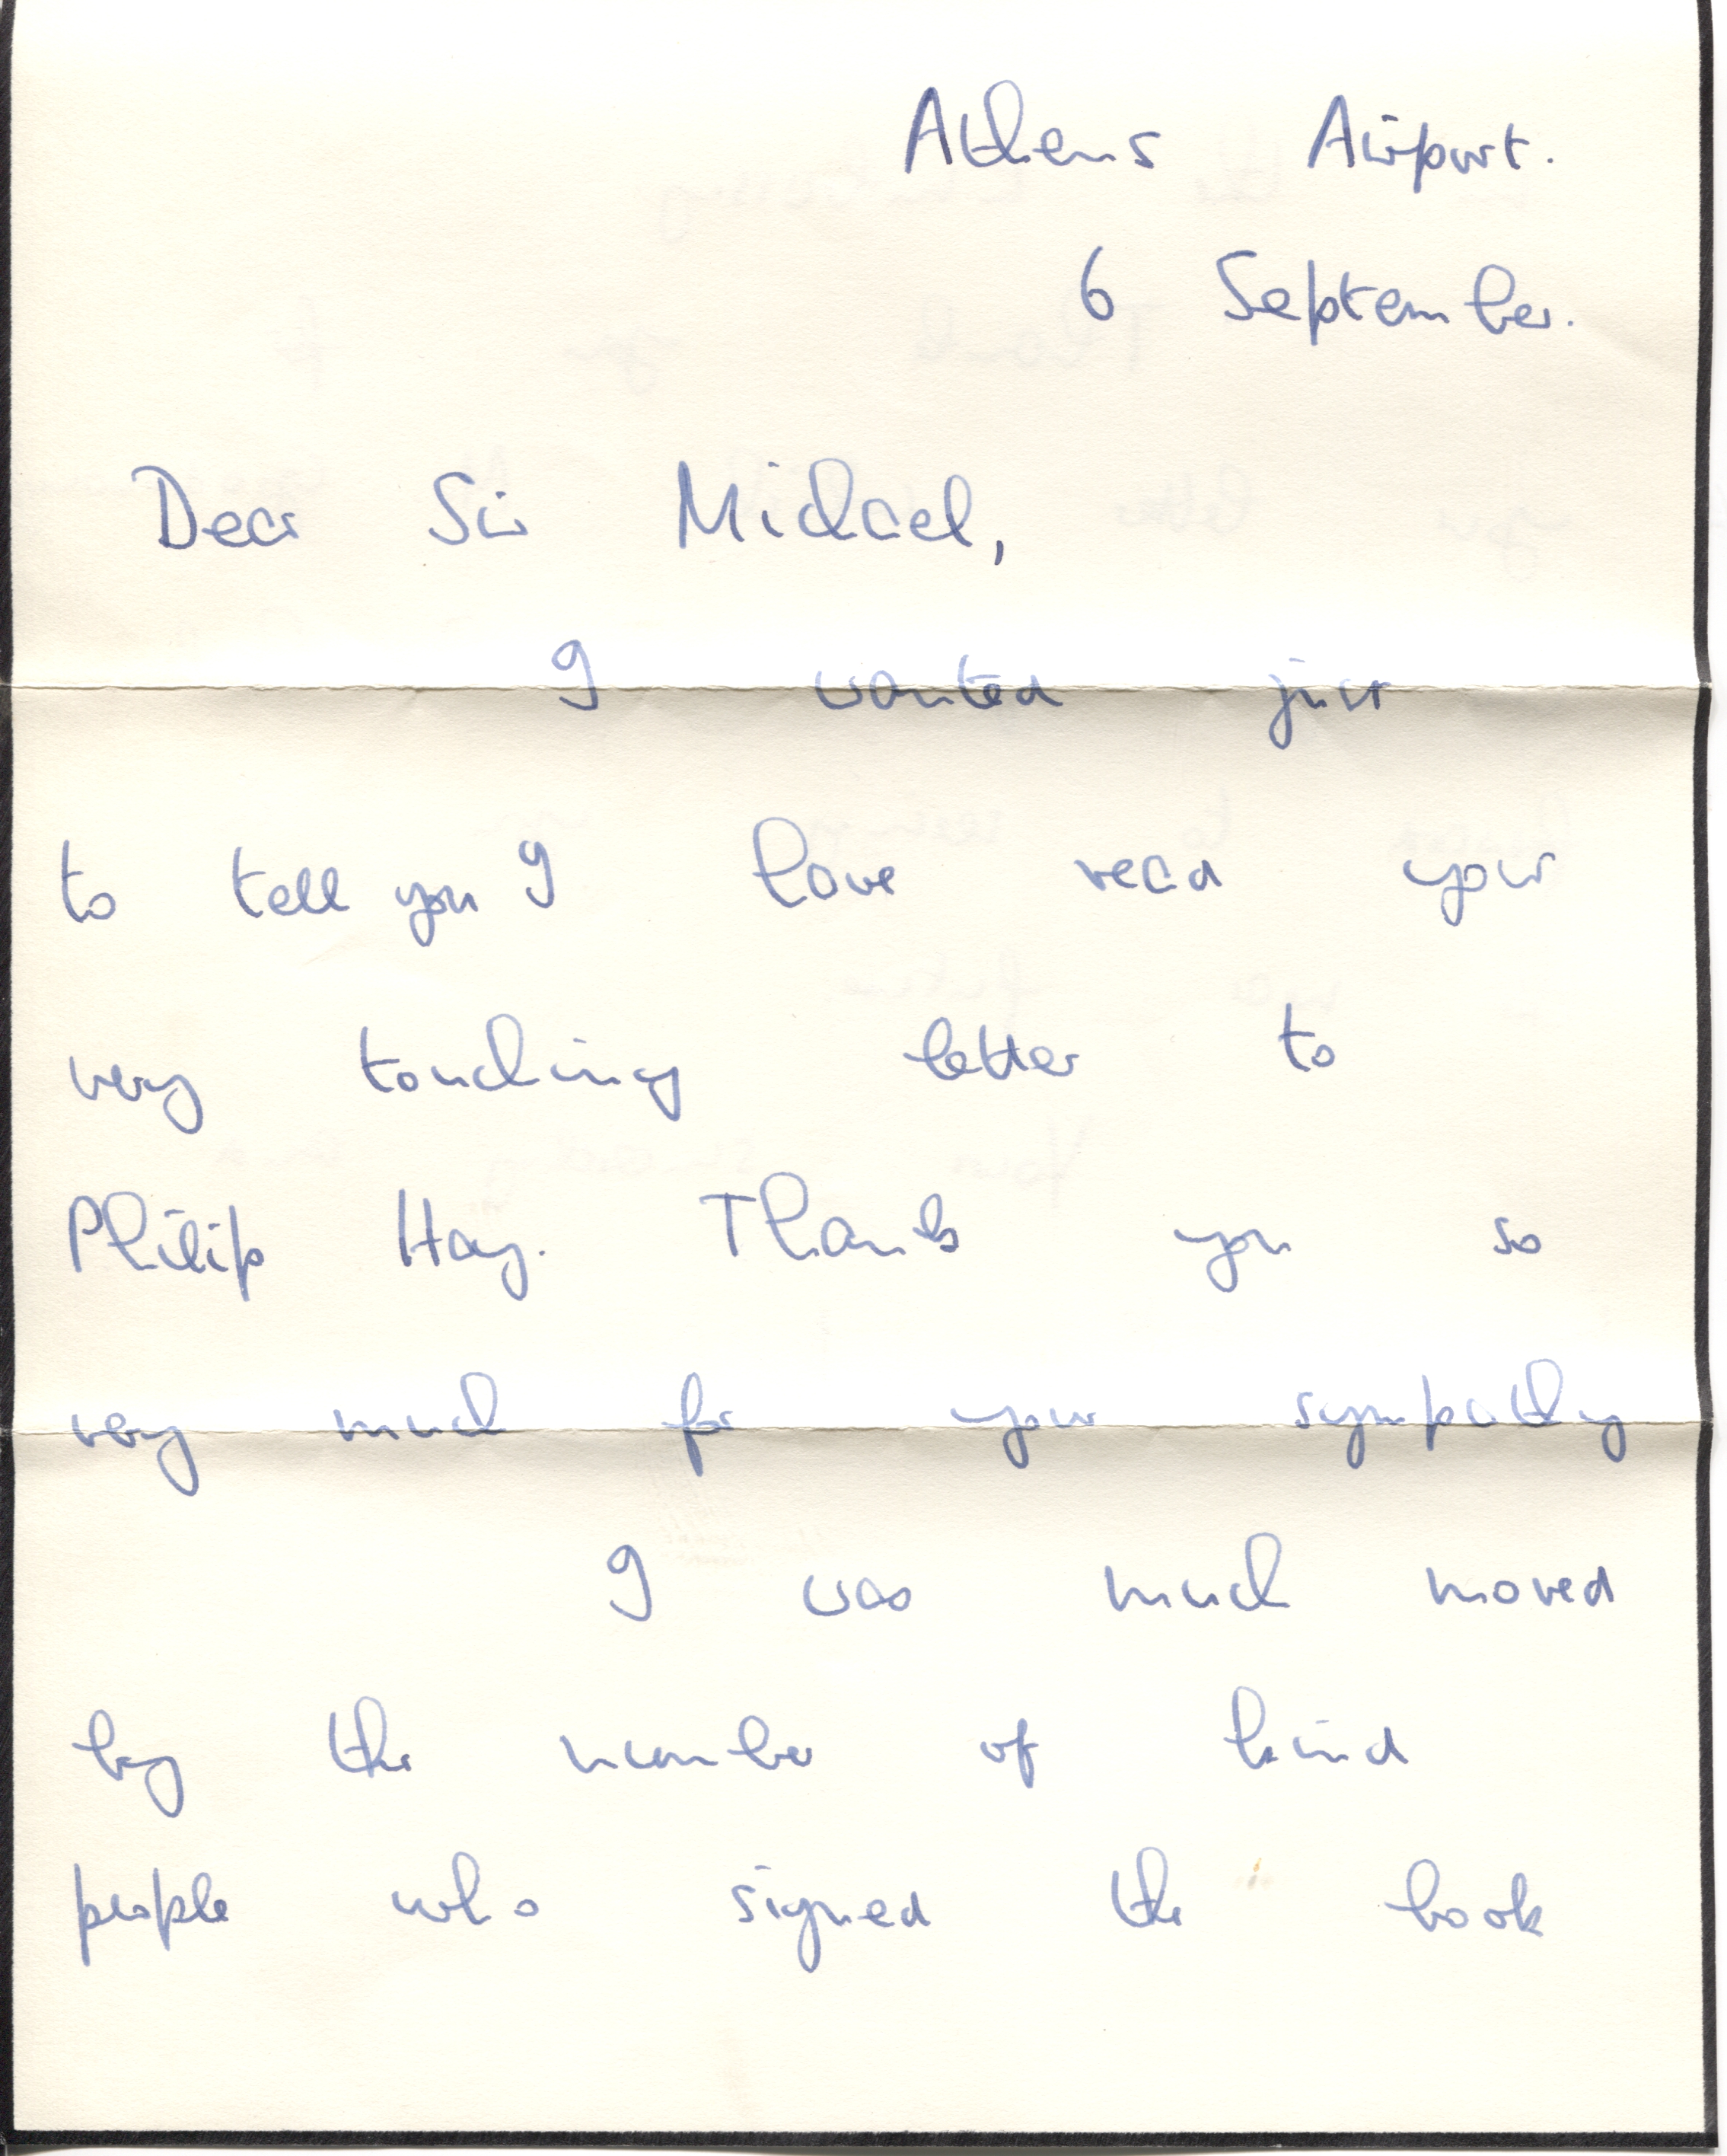 Athens Airport.
6 September.
Dear Sir Michael,
I wanted just
to tell you I have read your
very touching letter to
Philip Hay. Thank you so
very much for your sympathy
I was much moved
by the number of kind
people who signed the book